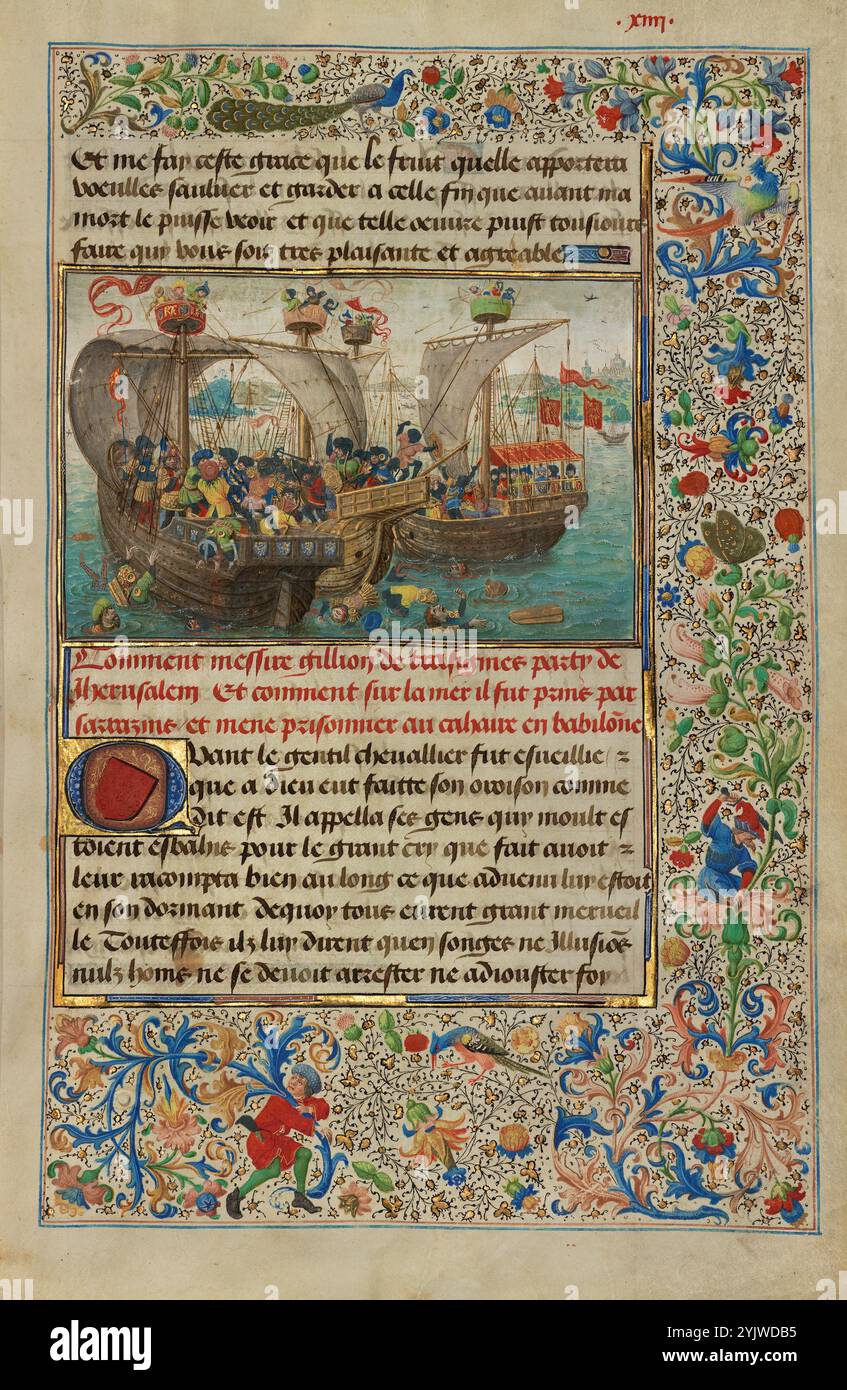 · xiiij ·
Et me fay ceste grace que le fruit quelle apportera
voeulles sauluer et garder a celle fin que auant ma
mort le puisse veoir et que telle oeuure puist tousiours
faire quy vous soit tres plaisante et agreable
Comment messire gillion de trasignies party de
Jherusalem Et comment sur la mer il fut prins par
sarrazins et mene prisonnier au cahaire en babilonne
Quant le gentil cheuallier fut esueillie z
que a dieu eut faitte son oroison comme
dit est Il appella ses gens quy moult es
toient esbahis pour le grant cry que fait auoit z
leur racompta bien au long ce que aduenu luy estoit
en son dormant dequoy tous eurent grant merueil
le Touteffois ilz luy dirent quen songes ne Illusiōs
nulz homs ne se deuoit arrester ne adiouster foy
alamy
Image ID: 2YJWDB5
www.alamy.com